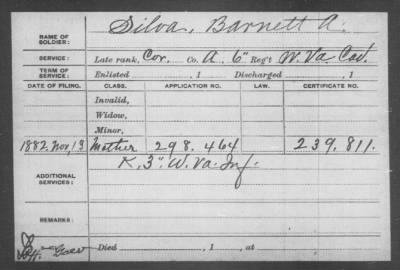 NAME OF SOLDIER: Silva, Barnett A.
SERVICE: Late rank, Cor. Co. A. 6" Reg't W. Va. Cav.
TERM OF SERVICE: Enlisted , 1 Discharged , 1
DATE OF FILING. CLASS. APPLICATION NO. LAW. CERTIFICATE NO.
Invalid,
Widow,
Minor,
1882, Nov, 13 Mother 298.464 239.811.
ADDITIONAL SERVICES: K, 3" W. Va. Inf.
REMARKS:
Died , 1 , at